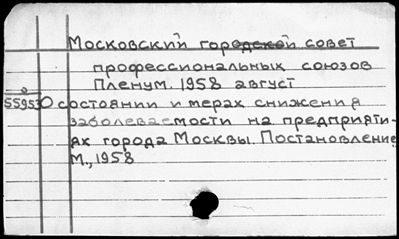 Московский городской совет
профессиональных союзов
Пленум. 1958 август
55953 О состоянии и мерах снижения
заболеваемости на предприяти-
ях города Москвы. Постановление
М., 1958